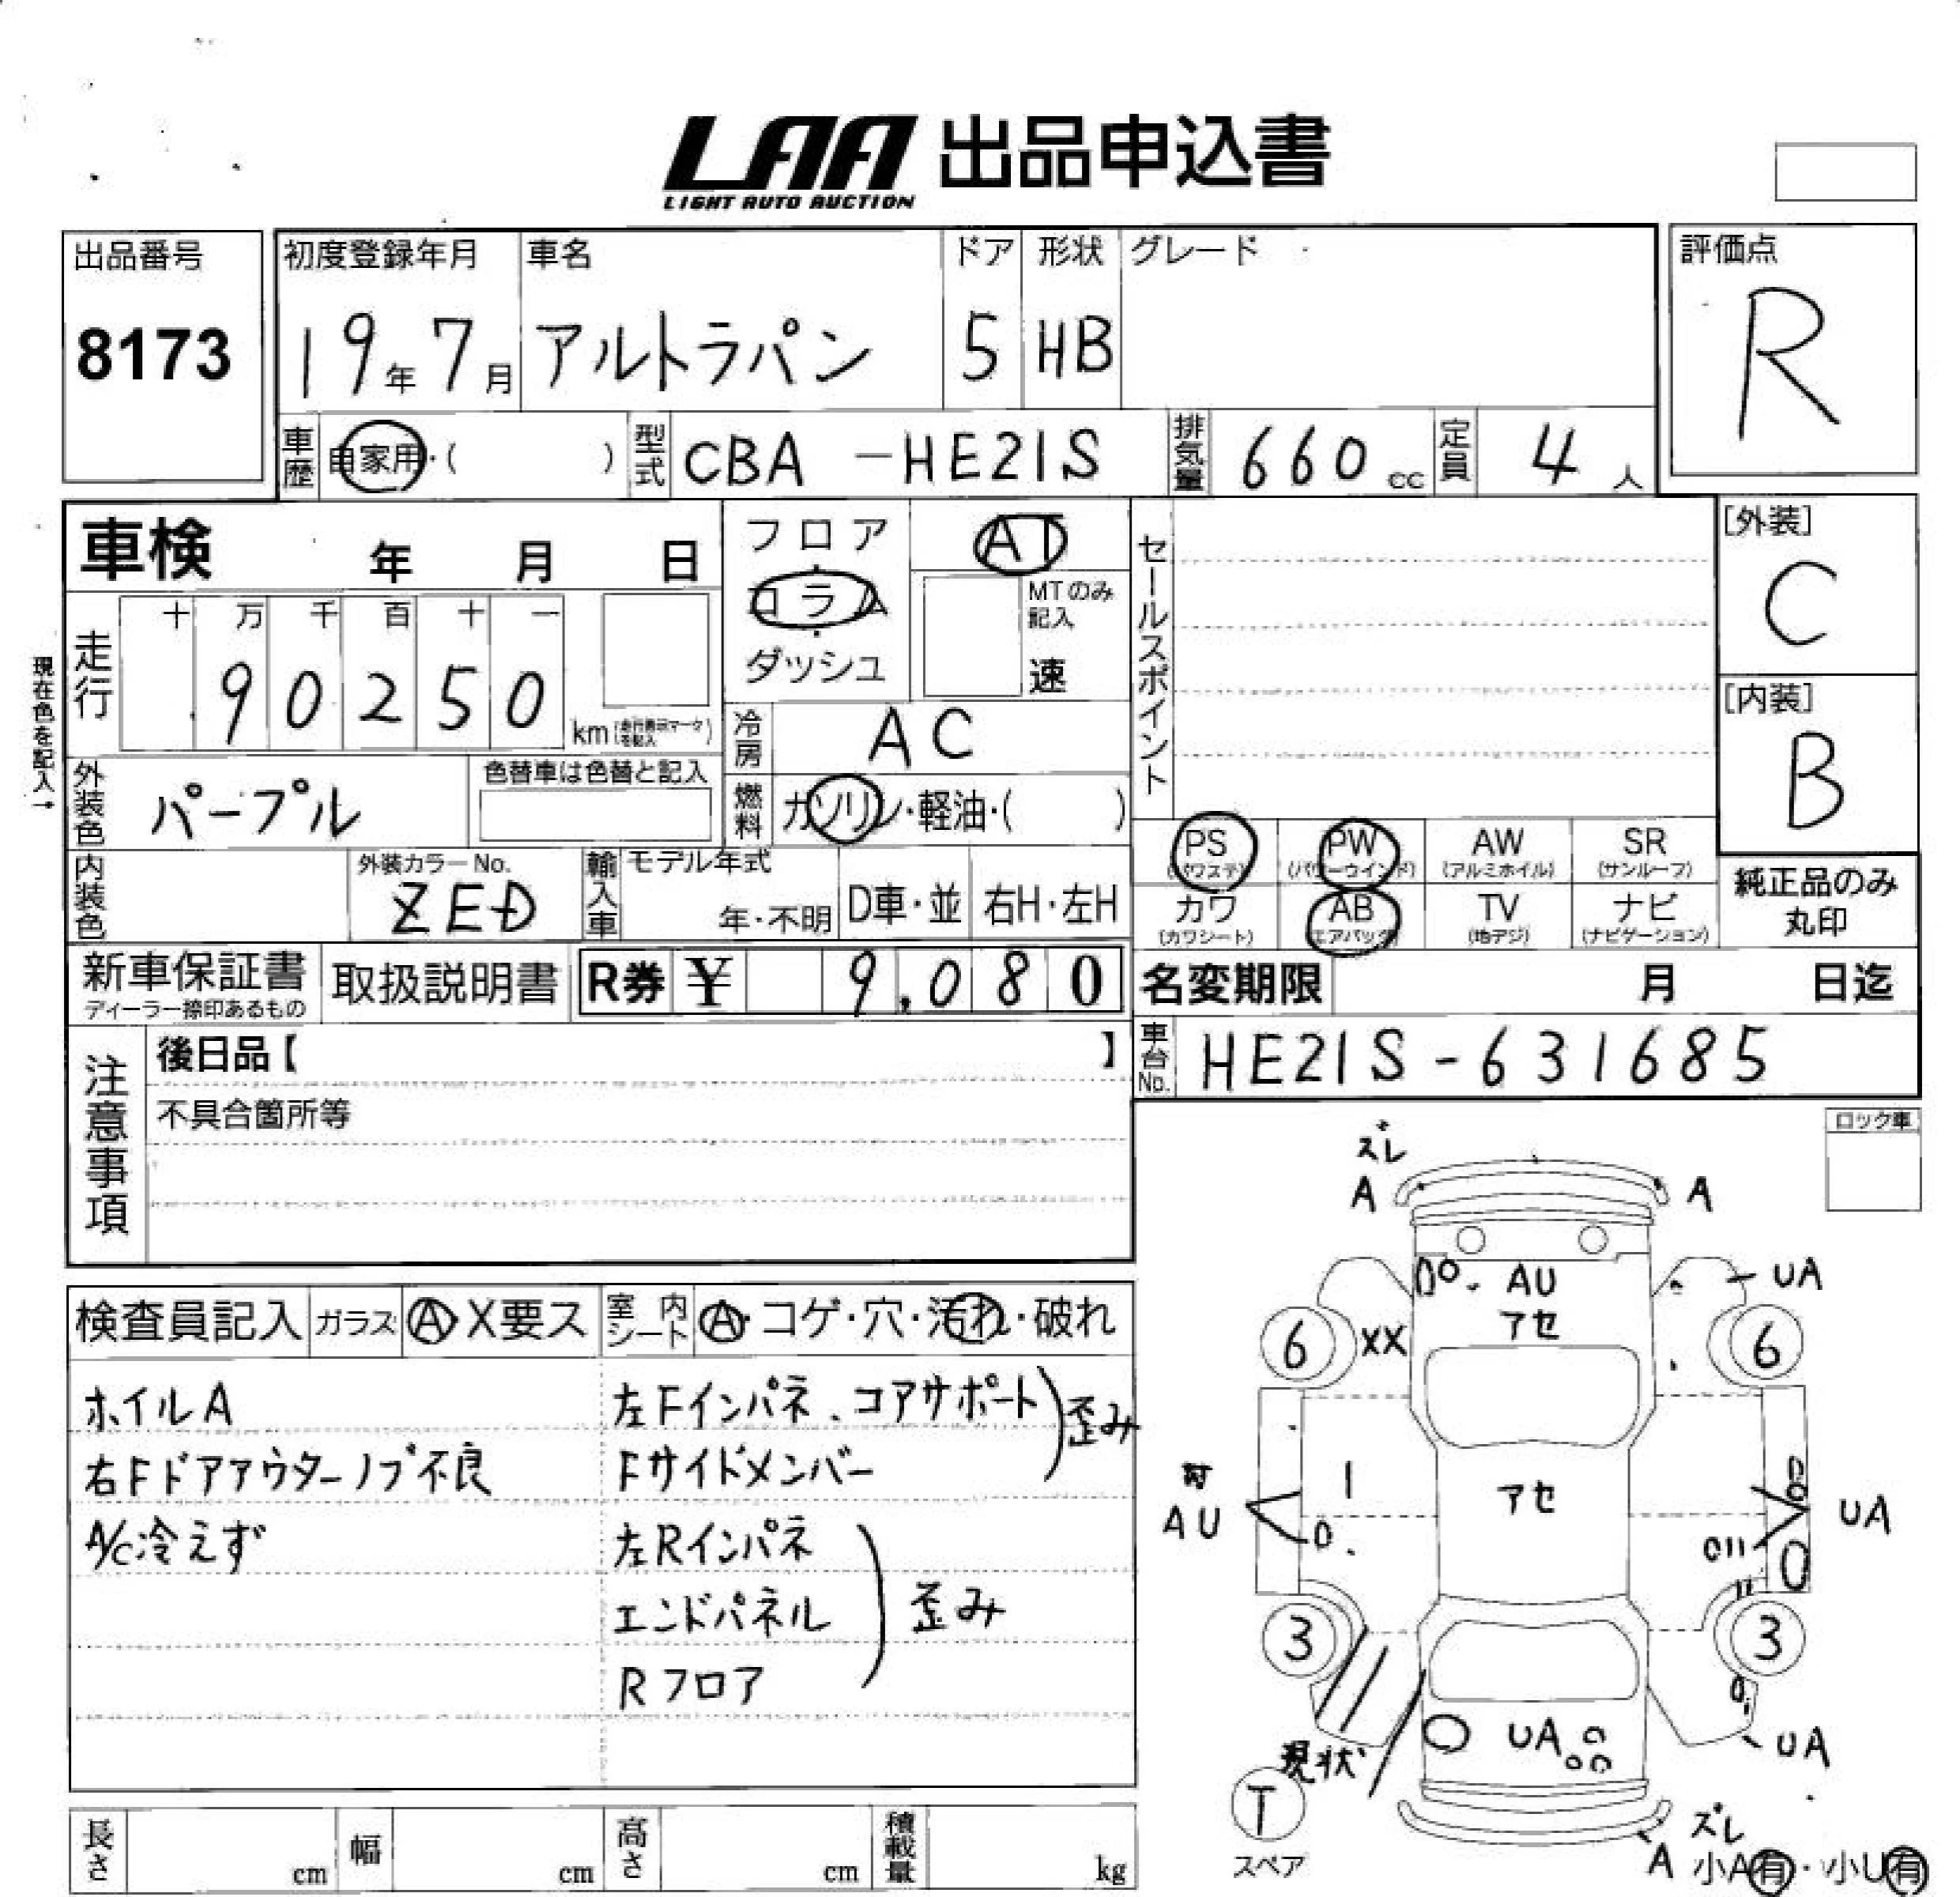 LAA 出品申込書
LIGHT AUTO AUCTION
出品番号
8173
初度登録年月 車名 ドア 形状 グレード
19年7月 アルトラパン 5 HB
評価点
R
車歴 自家用・( ) 型式 CBA-HE21S 排気量 660cc 定員 4人
車検 年 月 日
フロア・コラム・ダッシュ
AT
MTのみ記入
速
セールスポイント
[外装]
C
[内装]
B
現在色を記入→
走行 十 万 千 百 十 一
90250 km
冷房 AC
外装色 パープル 色替車は色替と記入
燃料 ガソリン・軽油・( )
PS (パワステ) PW (パワーウインド) AW (アルミホイル) SR (サンルーフ)
カワ (カワシート) AB (エアバッグ) TV (地デジ) ナビ (ナビゲーション)
純正品のみ
丸印
内装色 外装カラーNo. ZED
輸入車 モデル年式 年・不明 D車・並 右H・左H
新車保証書 ディーラー捺印あるもの 取扱説明書 R券 ¥ 9,080
名変期限 月 日迄
車台No. HE21S-631685
注意事項
後日品【 】
不具合箇所等
ロック車
検査員記入 ガラス A・X要ス 室内シート A・コゲ・穴・汚れ・破れ
ホイルA
右Fドアアウターノブ不良
A/C冷えず
左Fインパネ、コアサポート
Fサイドメンバー
歪み
左Rインパネ
エンドパネル
Rフロア
歪み
ズレ
A A
AU UA
アセ
6 XX 6
アセ
AU UA
3 3
UA UA
現状
T
スペア
ズレ
A 小A有・小U有
長さ cm 幅 cm 高さ cm 積載量 kg